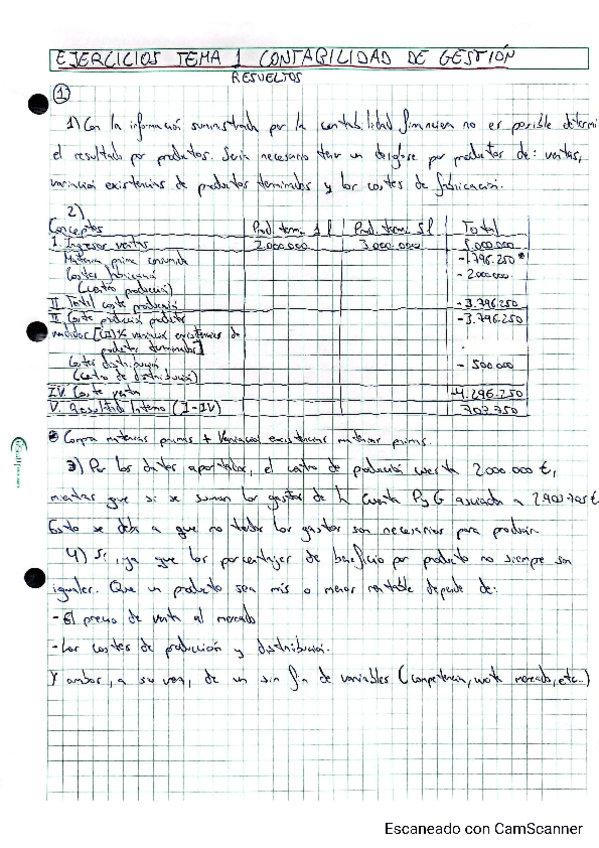 EJERCICIOS TEMA 1 CONTABILIDAD DE GESTIÓN
RESUELTOS
1
1) Con la información suministrada por la contabilidad financiera no es posible determi
el resultado por productos. Sería necesario tener un desglose por productos de: ventas,
variación existencias de productos terminados y los costes de fabricación.
2)
Conceptos Prod. term. 1 l Prod. term. 5 l Total
I. Ingresos ventas 2.000.000 3.000.000 5.000.000
Materia prima consumida -1.796.250*
Costes fabricación - 2.000.000
(Centro producción)
II. Total coste producción - 3.796.250
III. Coste producción productos -3.796.250
vendidos [(II)+/- variación existencias de
productos terminados]
Costes distribución - 500.000
(Centro de distribución)
IV. Coste -4.296.250
V. Resultado Interno (I-IV) 703.750
* Compra materias primas + Variación existencias materias primas.
3) Por los datos aportados, el centro de producción cuesta 2.000.000 €,
mientras que si se suman los gastos de la Cuenta PyG asciende a
Esto se debe a que no todos los gastos son necesarios para producir.
4) Sí, ya que los porcentajes de beneficio por producto no siempre son
iguales. Que un producto sea más o menos rentable depende de:
- El precio de venta al mercado
- Los costes de producción y distribución.
Y ambos, a su vez, de un sin fin de variables (competencia, mercado, etc...)
Escaneado con CamScanner